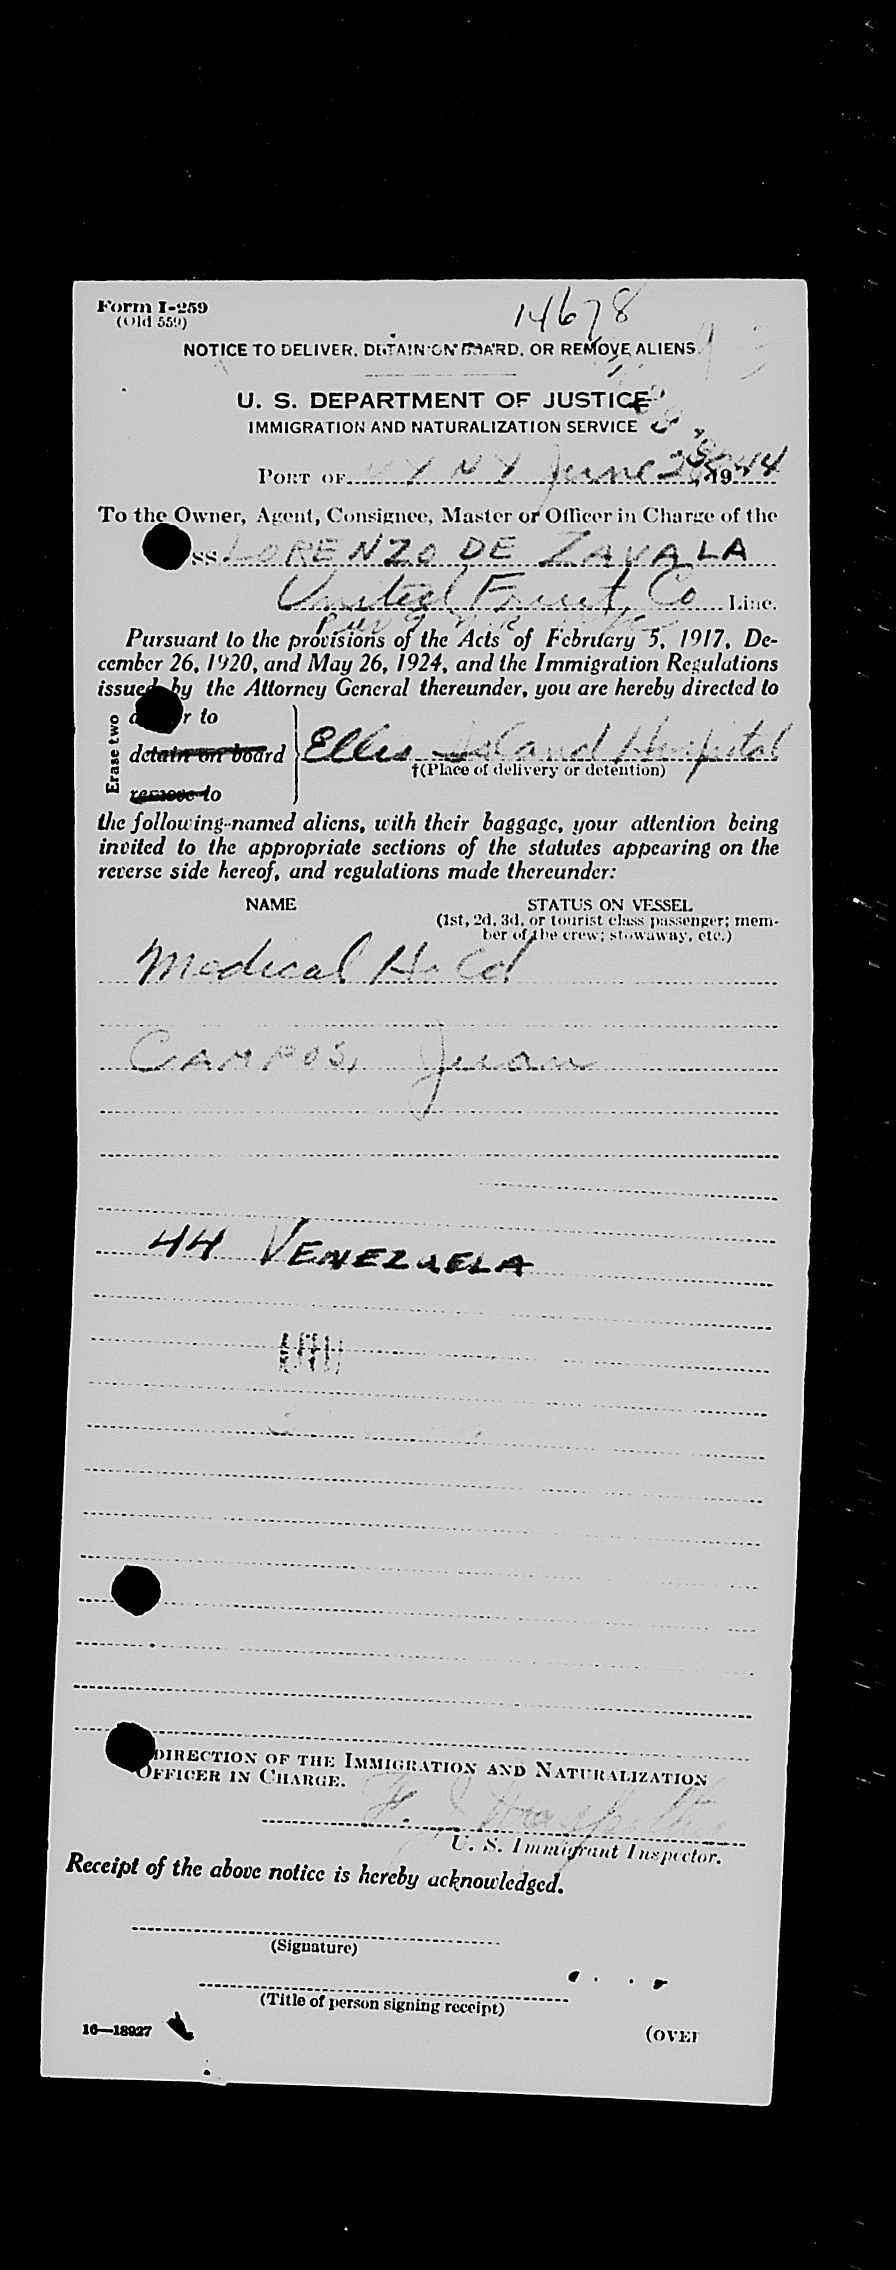 Form I-259
(Old 559)
14678
NOTICE TO DELIVER, DETAIN ON BOARD, OR REMOVE ALIENS
U. S. DEPARTMENT OF JUSTICE
IMMIGRATION AND NATURALIZATION SERVICE
PORT OF NY NY June 1944
To the Owner, Agent, Consignee, Master or Officer in Charge of the
SS LORENZO DE ZAVALA
United Fruit Co Line.
Pursuant to the provisions of the Acts of February 5, 1917, De-
cember 26, 1920, and May 26, 1924, and the Immigration Regulations
issued by the Attorney General thereunder, you are hereby directed to
Erase two
r to
detain on board
remove to
Ellis Island Hospital
†(Place of delivery or detention)
the following-named aliens, with their baggage, your attention being
invited to the appropriate sections of the statutes appearing on the
reverse side hereof, and regulations made thereunder:
NAME STATUS ON VESSEL
(1st, 2d, 3d, or tourist class passenger; mem-
ber of the crew; stowaway, etc.)
Medical Held
CAMPOS, Juan
44 VENEZUELA
DIRECTION OF THE IMMIGRATION AND NATURALIZATION
OFFICER IN CHARGE.
U. S. Immigrant Inspector.
Receipt of the above notice is hereby acknowledged.
(Signature)
(Title of person signing receipt)
16—18927 (OVE